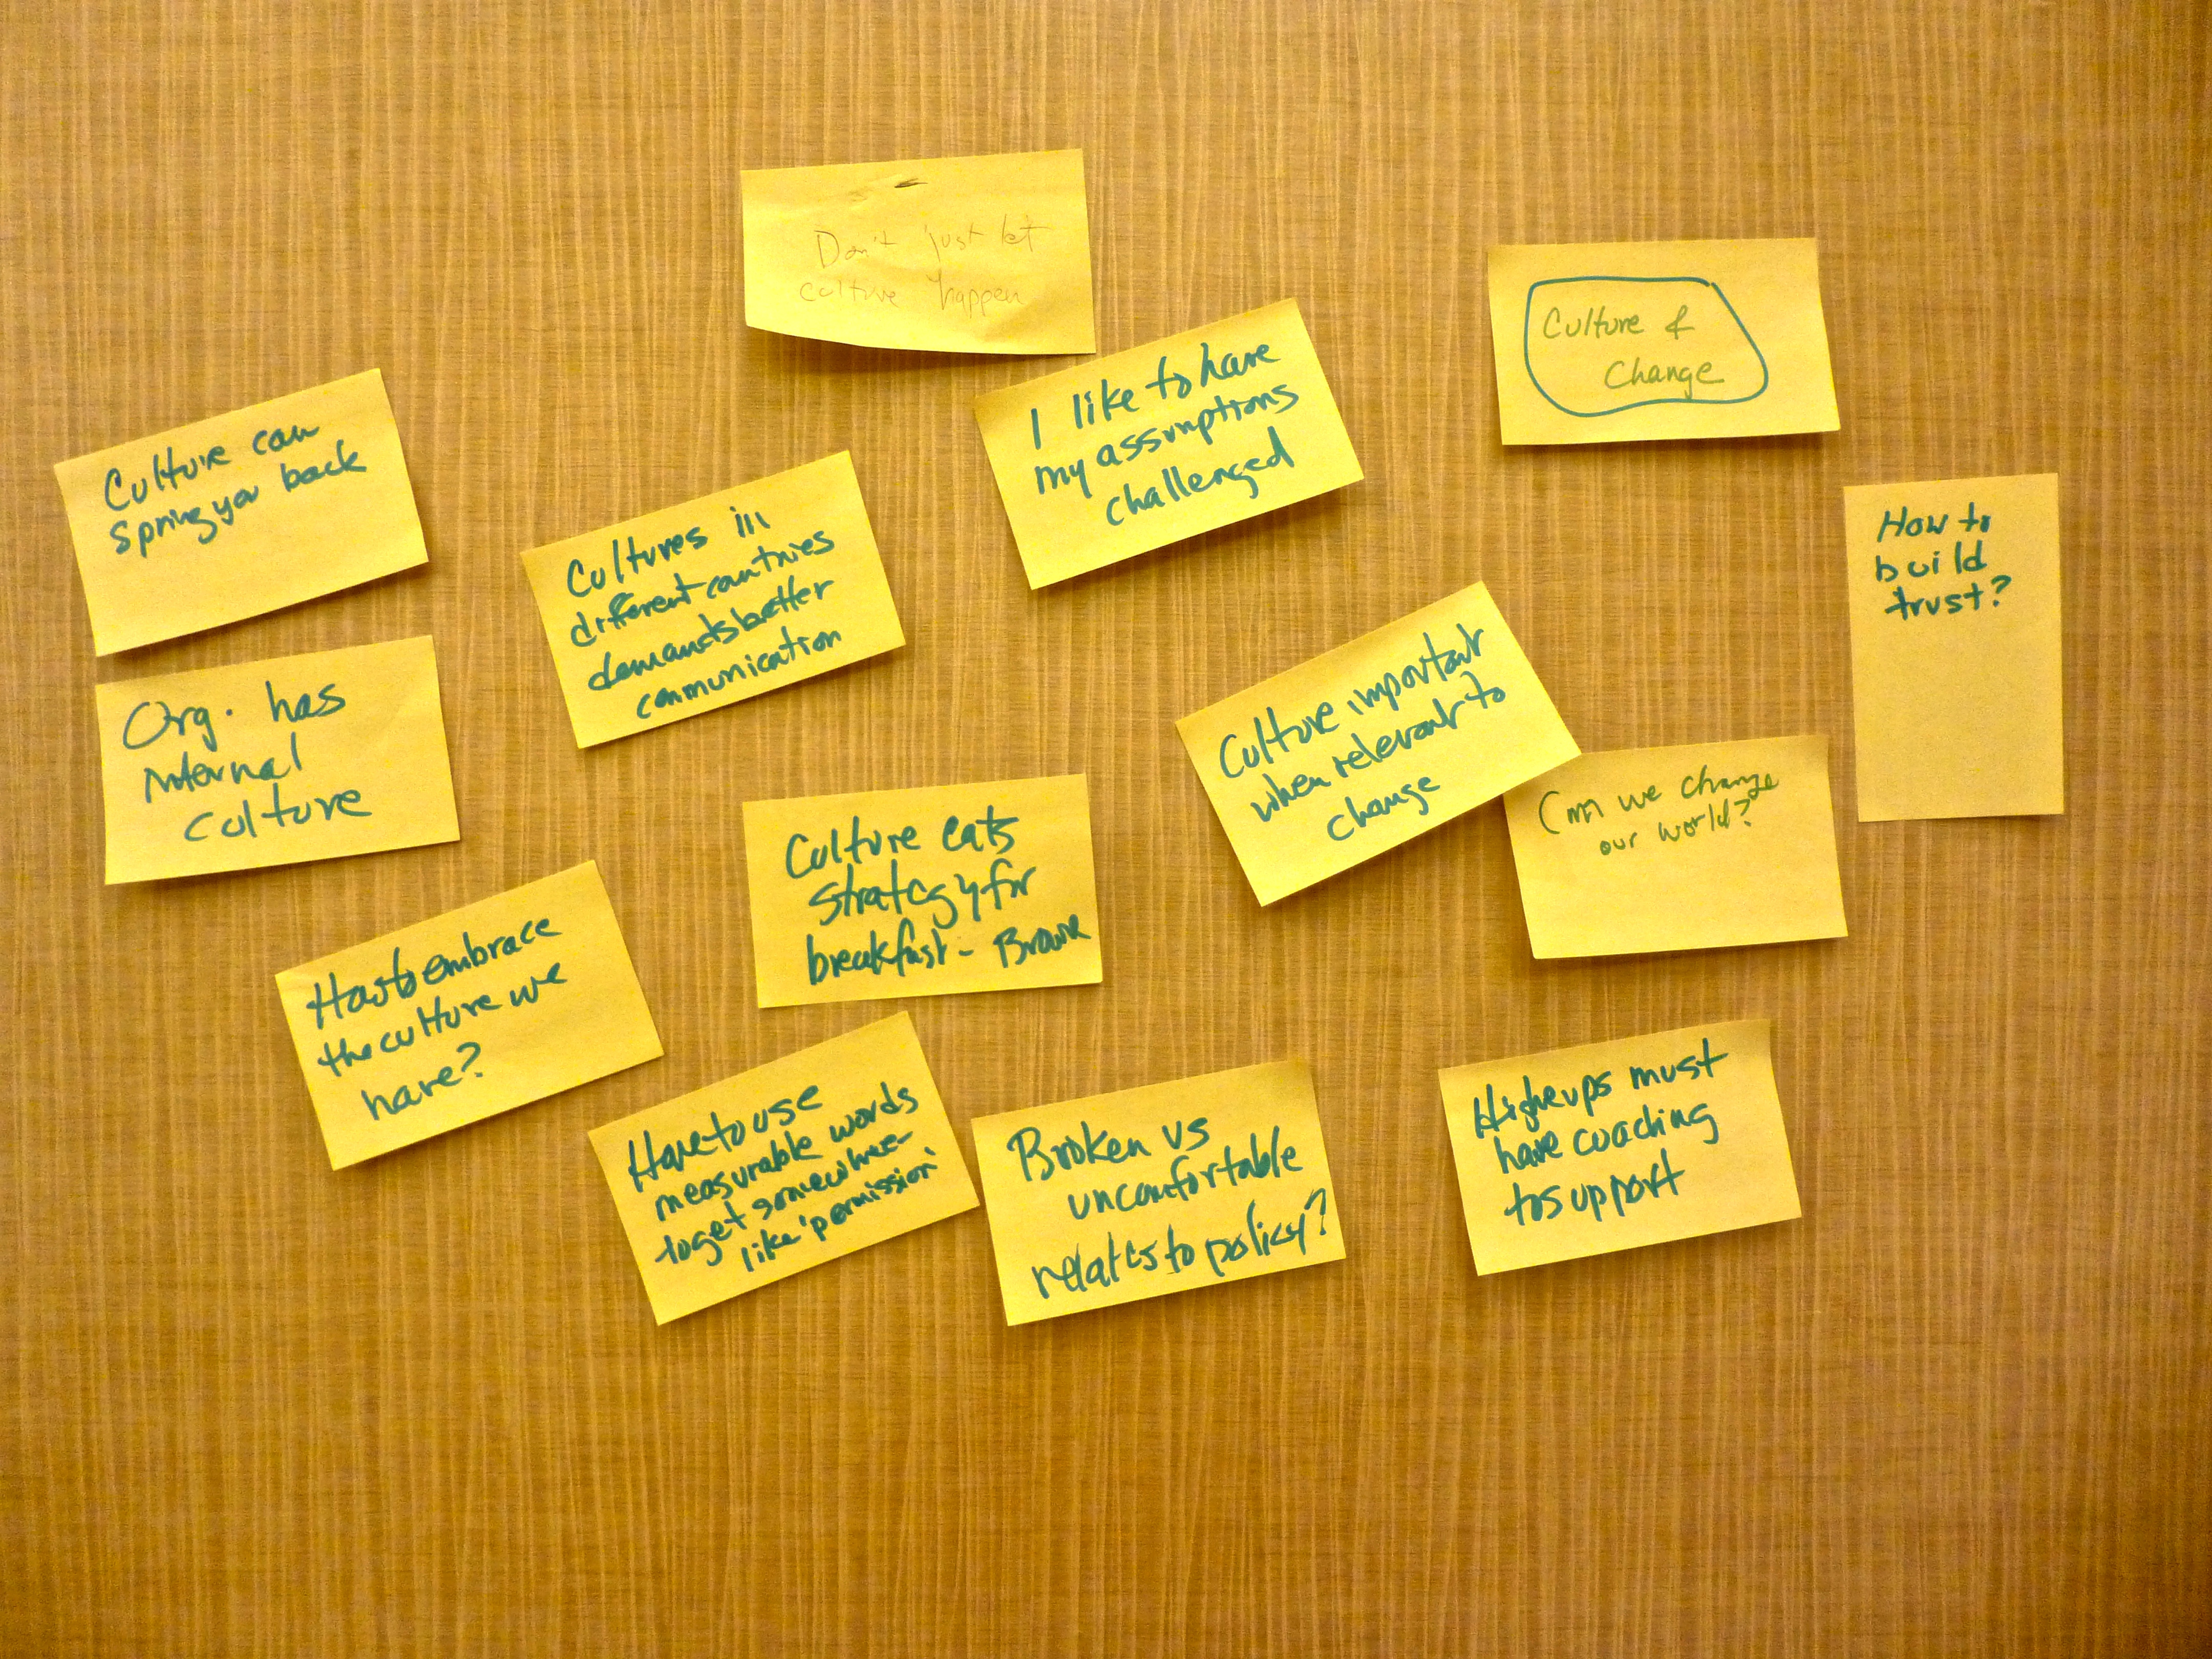 Don't just let
culture happen
Culture &
Change
I like to have
my assumptions
challenged
Culture can
spring you back
Cultures in
different countries
demands better
communication
How to
build
trust?
Org. has
internal
culture
Culture important
when relevant to
change
Can we change
our world?
Culture eats
strategy for
breakfast -
Have to embrace
the culture we
have?
Have to use
measurable words
to get somewhere -
like 'permission'
Broken vs
uncomfortable
relates to policy?
Higherups must
have coaching
to support